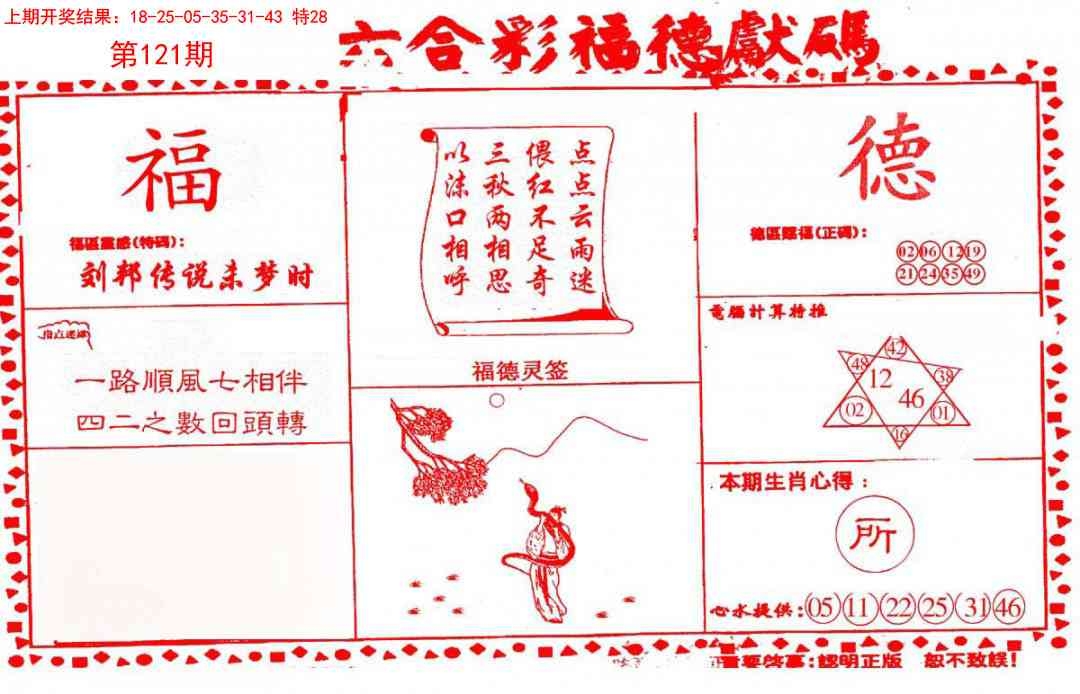 上期开奖结果：18-25-05-35-31-43 特28
第121期
六合彩福德獻碼
福
福區靈感(特碼)：
刘邦传说未梦时
一路順風七相伴
四二之數回頭轉
点点云雨迷
偎红不足奇
三秋两相思
以沫口相呼
福德灵签
德
德區賜福(正碼)：
02 06 12 19
21 24 35 49
電腦計算特推
42
48
38
12
46
02
01
16
本期生肖心得：
所
心水提供：05 11 22 25 31 46
重要啓事：認明正版 恕不致誤！